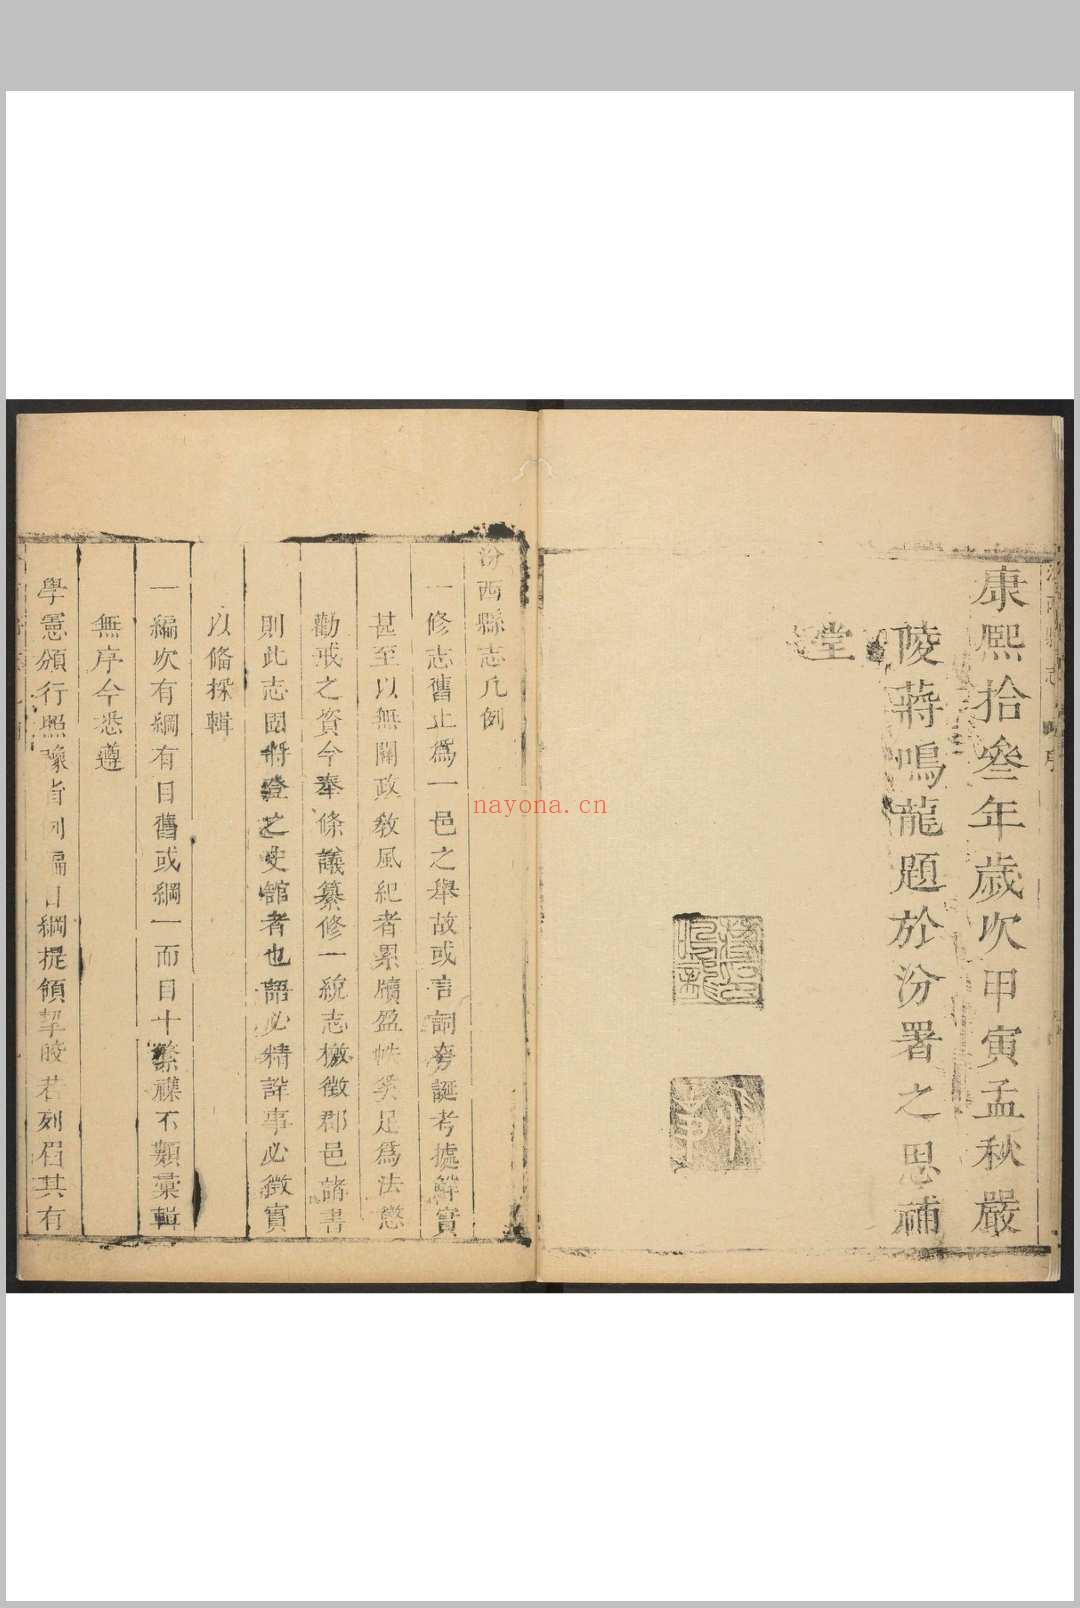 康熙拾叁年歲次甲寅孟秋嚴
陵蔣鳴龍題於汾署之思補
堂
汾西縣志凡例
一修志舊止爲一邑之舉故或言詞夸誕考據鮮實
甚至以無關政敎風紀者累牘盈帙奚足爲法懲
勸戒之資今奉條議纂修一統志檄徵郡邑諸書
則此志固將登之史館者也語必精詳事必徵實
以俻採輯
一編次有綱有目舊或綱一而目十繁襍不類彙輯
無序今悉遵
學憲頒行照豫省例編目綱提領挈晈若列眉其有
nayona.cn